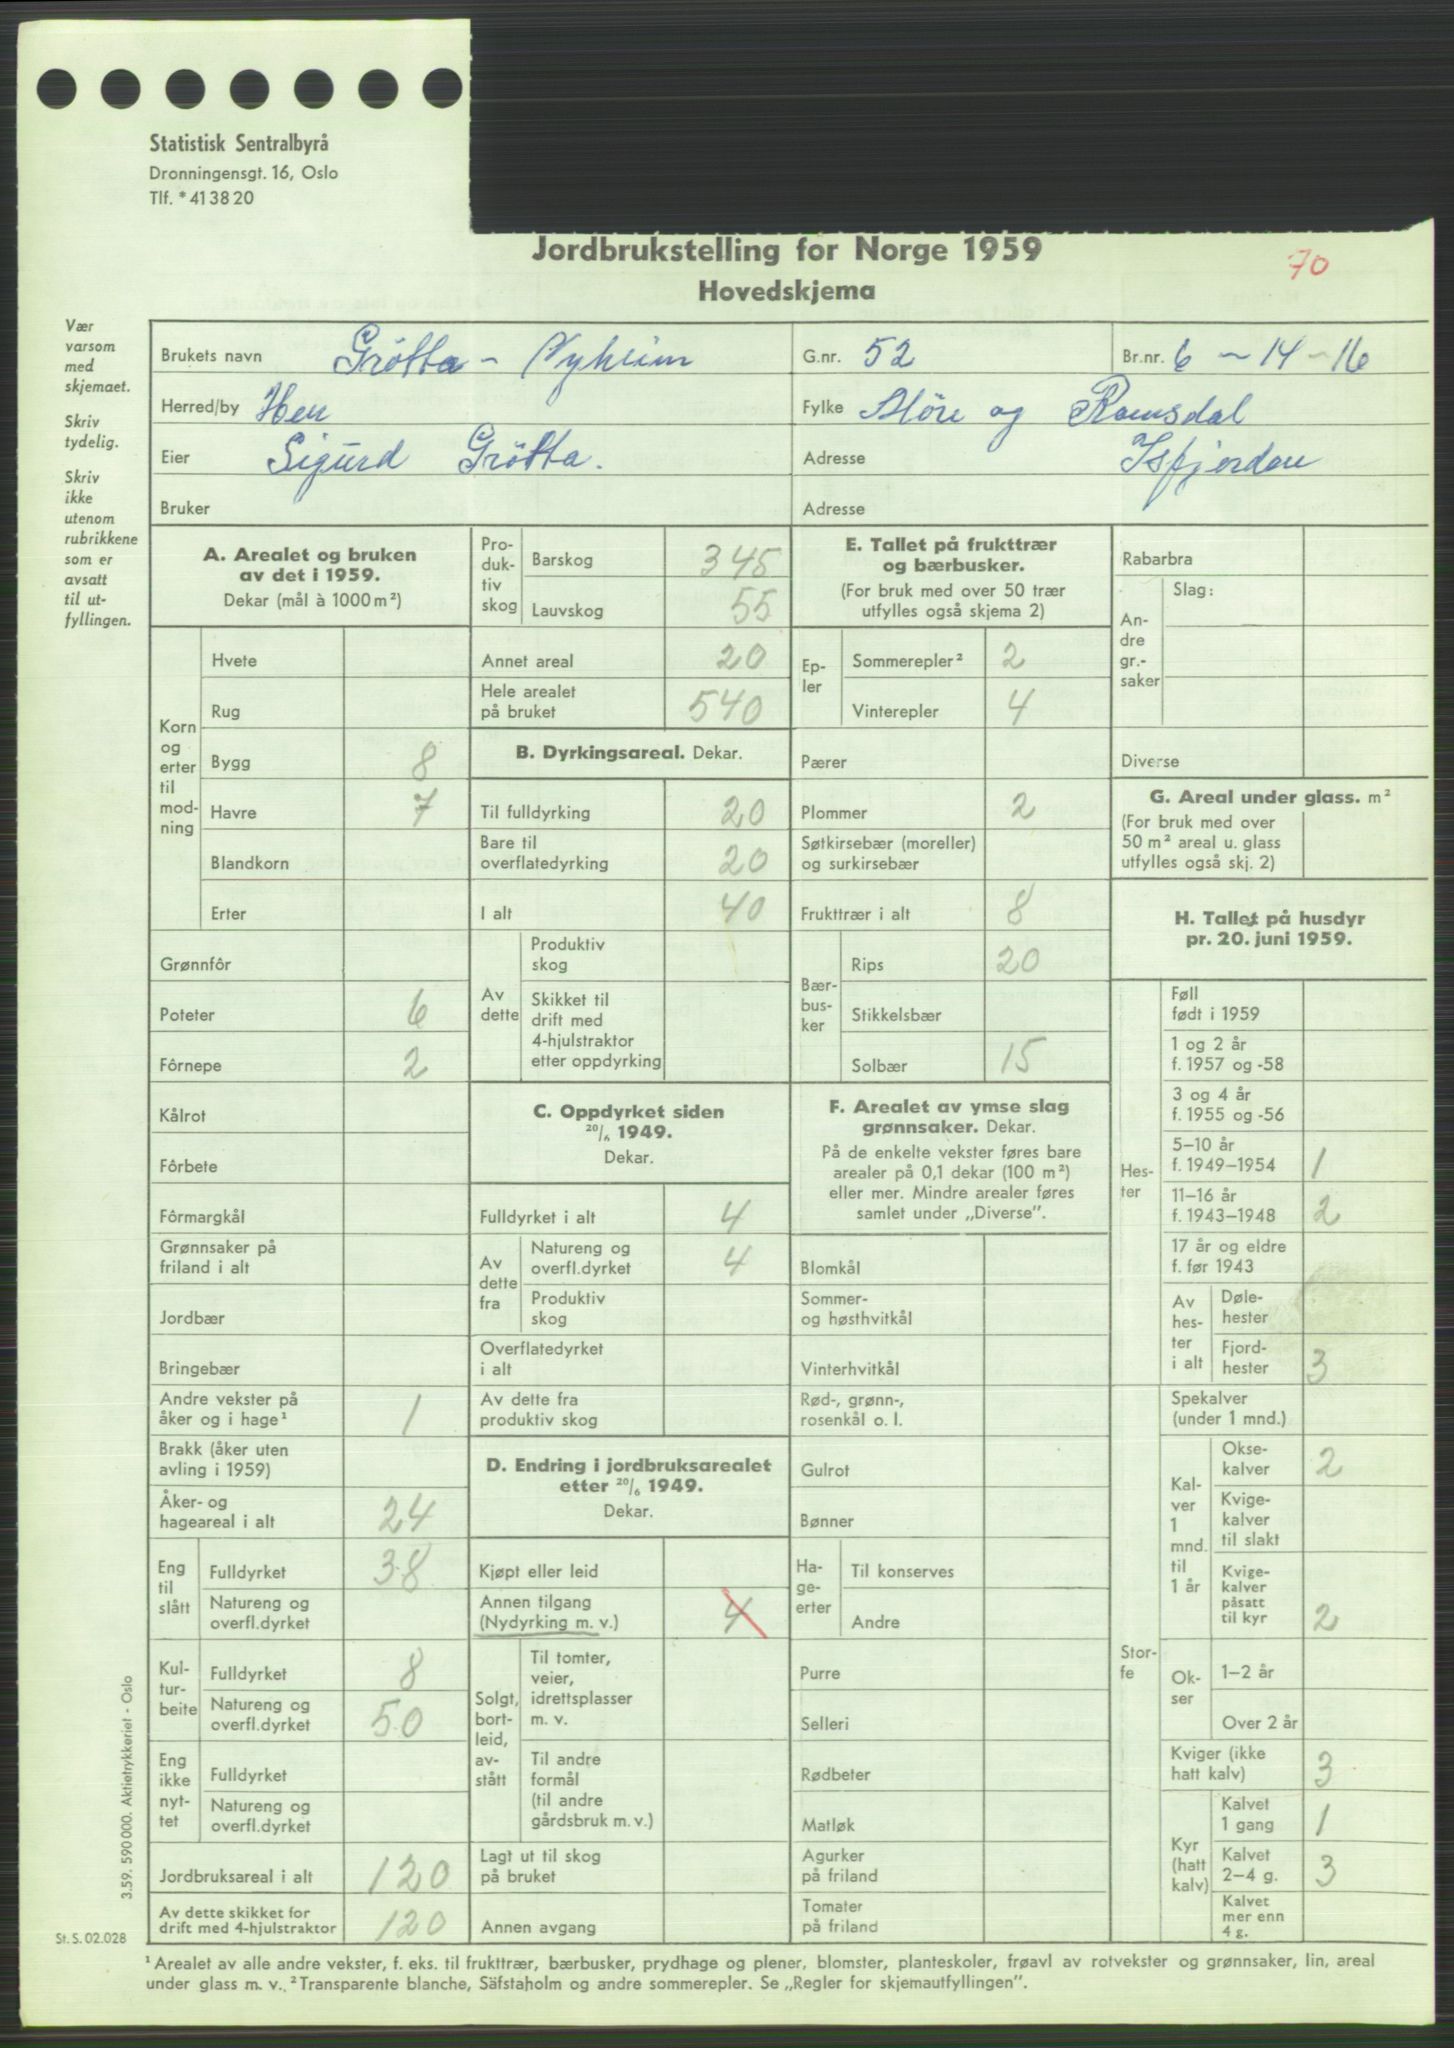 Statistisk Sentralbyrå
Dronningensgt. 16, Oslo
Tlf. *413820
Jordbrukstelling for Norge 1959
70
Hovedskjema
Vær
varsom
med
skjemaet.
Skriv
tydelig.
Skriv
ikke
utenom
rubrikkene
som er
avsatt
til ut-
fyllingen.
Brukets navn Grötta - Nyheim G.nr. 52 Br.nr. 6 - 14 - 16
Herred/by Hen Fylke Möre og Romsdal
Eier Sigurd Grötta. Adresse Isfjorden
Bruker Adresse
A. Arealet og bruken
av det i 1959.
Dekar (mål à 1000 m²)
Korn
og
erter
til
mod-
ning
Hvete
Rug
Bygg 8
Havre 7
Blandkorn
Erter
Grønnfôr
Poteter 6
Fôrnepe 2
Kålrot
Fôrbete
Fôrmargkål
Grønnsaker på
friland i alt
Jordbær
Bringebær
Andre vekster på
åker og i hage¹ 1
Brakk (åker uten
avling i 1959)
Åker- og
hageareal i alt 24
Eng
til
slått
Fulldyrket 38
Natureng og
overfl.dyrket
Kul-
tur-
beite
Fulldyrket 8
Natureng og
overfl.dyrket 50
Eng
ikke
nyt-
tet
Fulldyrket
Natureng og
overfl.dyrket
Jordbruksareal i alt 120
Av dette skikket for
drift med 4-hjulstraktor 120
Pro-
duk-
tiv
skog
Barskog 345
Lauvskog 55
Annet areal 20
Hele arealet
på bruket 540
B. Dyrkingsareal. Dekar.
Til fulldyrking 20
Bare til
overflatedyrking 20
I alt 40
Av
dette
Produktiv
skog
Skikket til
drift med
4-hjulstraktor
etter oppdyrking
C. Oppdyrket siden
20/6 1949.
Dekar.
Fulldyrket i alt 4
Av
dette
fra
Natureng og
overfl.dyrket 4
Produktiv
skog
Overflatedyrket
i alt
Av dette fra
produktiv skog
D. Endring i jordbruksarealet
etter 20/6 1949.
Dekar.
Kjøpt eller leid
Annen tilgang
(Nydyrking m. v.) 4
Solgt,
bort-
leid,
av-
stått
Til tomter,
veier,
idrettsplasser
m. v.
Til andre
formål
(til andre
gårdsbruk m. v.)
Lagt ut til skog
på bruket
Annen avgang
E. Tallet på frukttrær
og bærbusker.
(For bruk med over 50 trær
utfylles også skjema 2)
Ep-
ler
Sommerepler² 2
Vinterepler 4
Pærer
Plommer 2
Søtkirsebær (moreller)
og surkirsebær
Frukttrær i alt 8
Bær-
bus-
ker
Rips 20
Stikkelsbær
Solbær 15
F. Arealet av ymse slag
grønnsaker. Dekar.
På de enkelte vekster føres bare
arealer på 0,1 dekar (100 m²)
eller mer. Mindre arealer føres
samlet under „Diverse”.
Blomkål
Sommer-
og høsthvitkål
Vinterhvitkål
Rød-, grønn-,
rosenkål o. l.
Gulrot
Bønner
Ha-
ge-
erter
Til konserves
Andre
Purre
Selleri
Rødbeter
Matløk
Agurker
på friland
Tomater
på friland
Rabarbra
An-
dre
gr.-
saker
Slag:
Diverse
G. Areal under glass. m²
(For bruk med over
50 m² areal u. glass
utfylles også skj. 2)
H. Tallet på husdyr
pr. 20. juni 1959.
Hes-
ter
Føll
født i 1959
1 og 2 år
f. 1957 og -58
3 og 4 år
f. 1955 og -56
5–10 år
f. 1949–1954 1
11–16 år
f. 1943–1948 2
17 år og eldre
f. før 1943
Av
hes-
ter
i alt
Døle-
hester
Fjord-
hester 3
Stor-
fe
Spekalver
(under 1 mnd.)
Kal-
ver
1
mnd.
til
1 år
Okse-
kalver 2
Kvige-
kalver
til slakt
Kvige-
kalver
påsatt
til kyr 2
Ok-
ser
1–2 år
Over 2 år
Kviger (ikke
hatt kalv) 3
Kyr
(hatt
kalv)
Kalvet
1 gang 1
Kalvet
2–4 g. 3
Kalvet
mer enn
4 g.
3.59. 590 000. Aktietrykkeriet - Oslo
St. S. 02.028
¹ Arealet av alle andre vekster, f. eks. til frukttrær, bærbusker, prydhage og plener, blomster, planteskoler, frøavl av rotvekster og grønnsaker, lin, areal
under glass m. v. ² Transparente blanche, Säfstaholm og andre sommerepler. Se „Regler for skjemautfyllingen”.